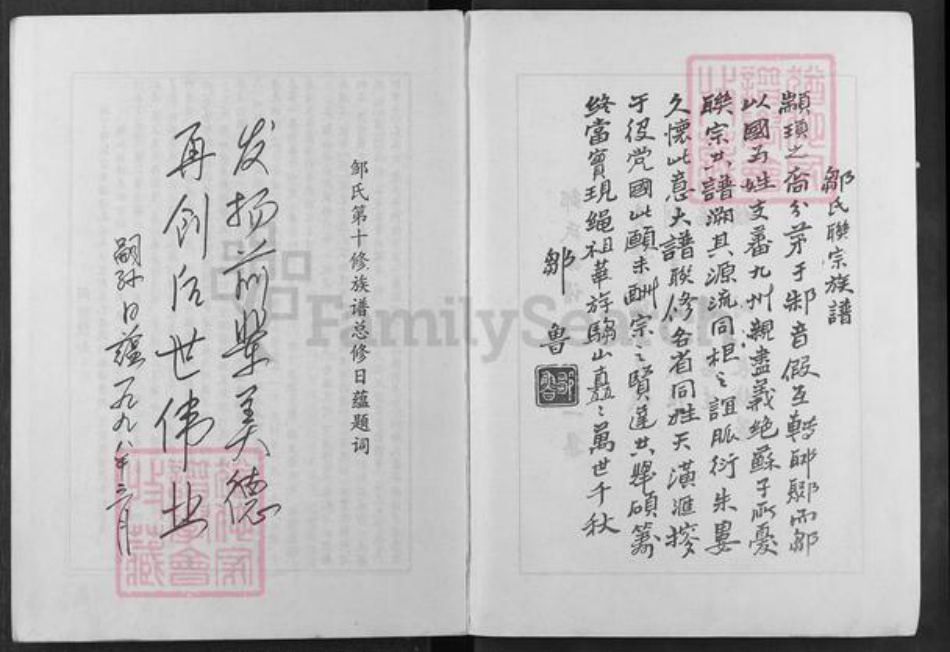 鄒氏聯宗族譜
顓頊之裔分茅于邾音假互轉郰鄹而鄒
以國為姓支蕃九州親盡義絕蘇子所憂
聯宗共譜溯其源流同根之誼脈衍朱婁
久懷此意大譜聯修各省同姓天潢滙
于役党國此願未酬宗之賢達共舉碩籌
終當實現繩祖華族騶山矗之萬世千秋
鄒 魯
邹氏第十修族谱总修日蕴题词
发扬前辈美德
再创后世伟业
嗣孙日蕴一九九八年二月
FamilySearch